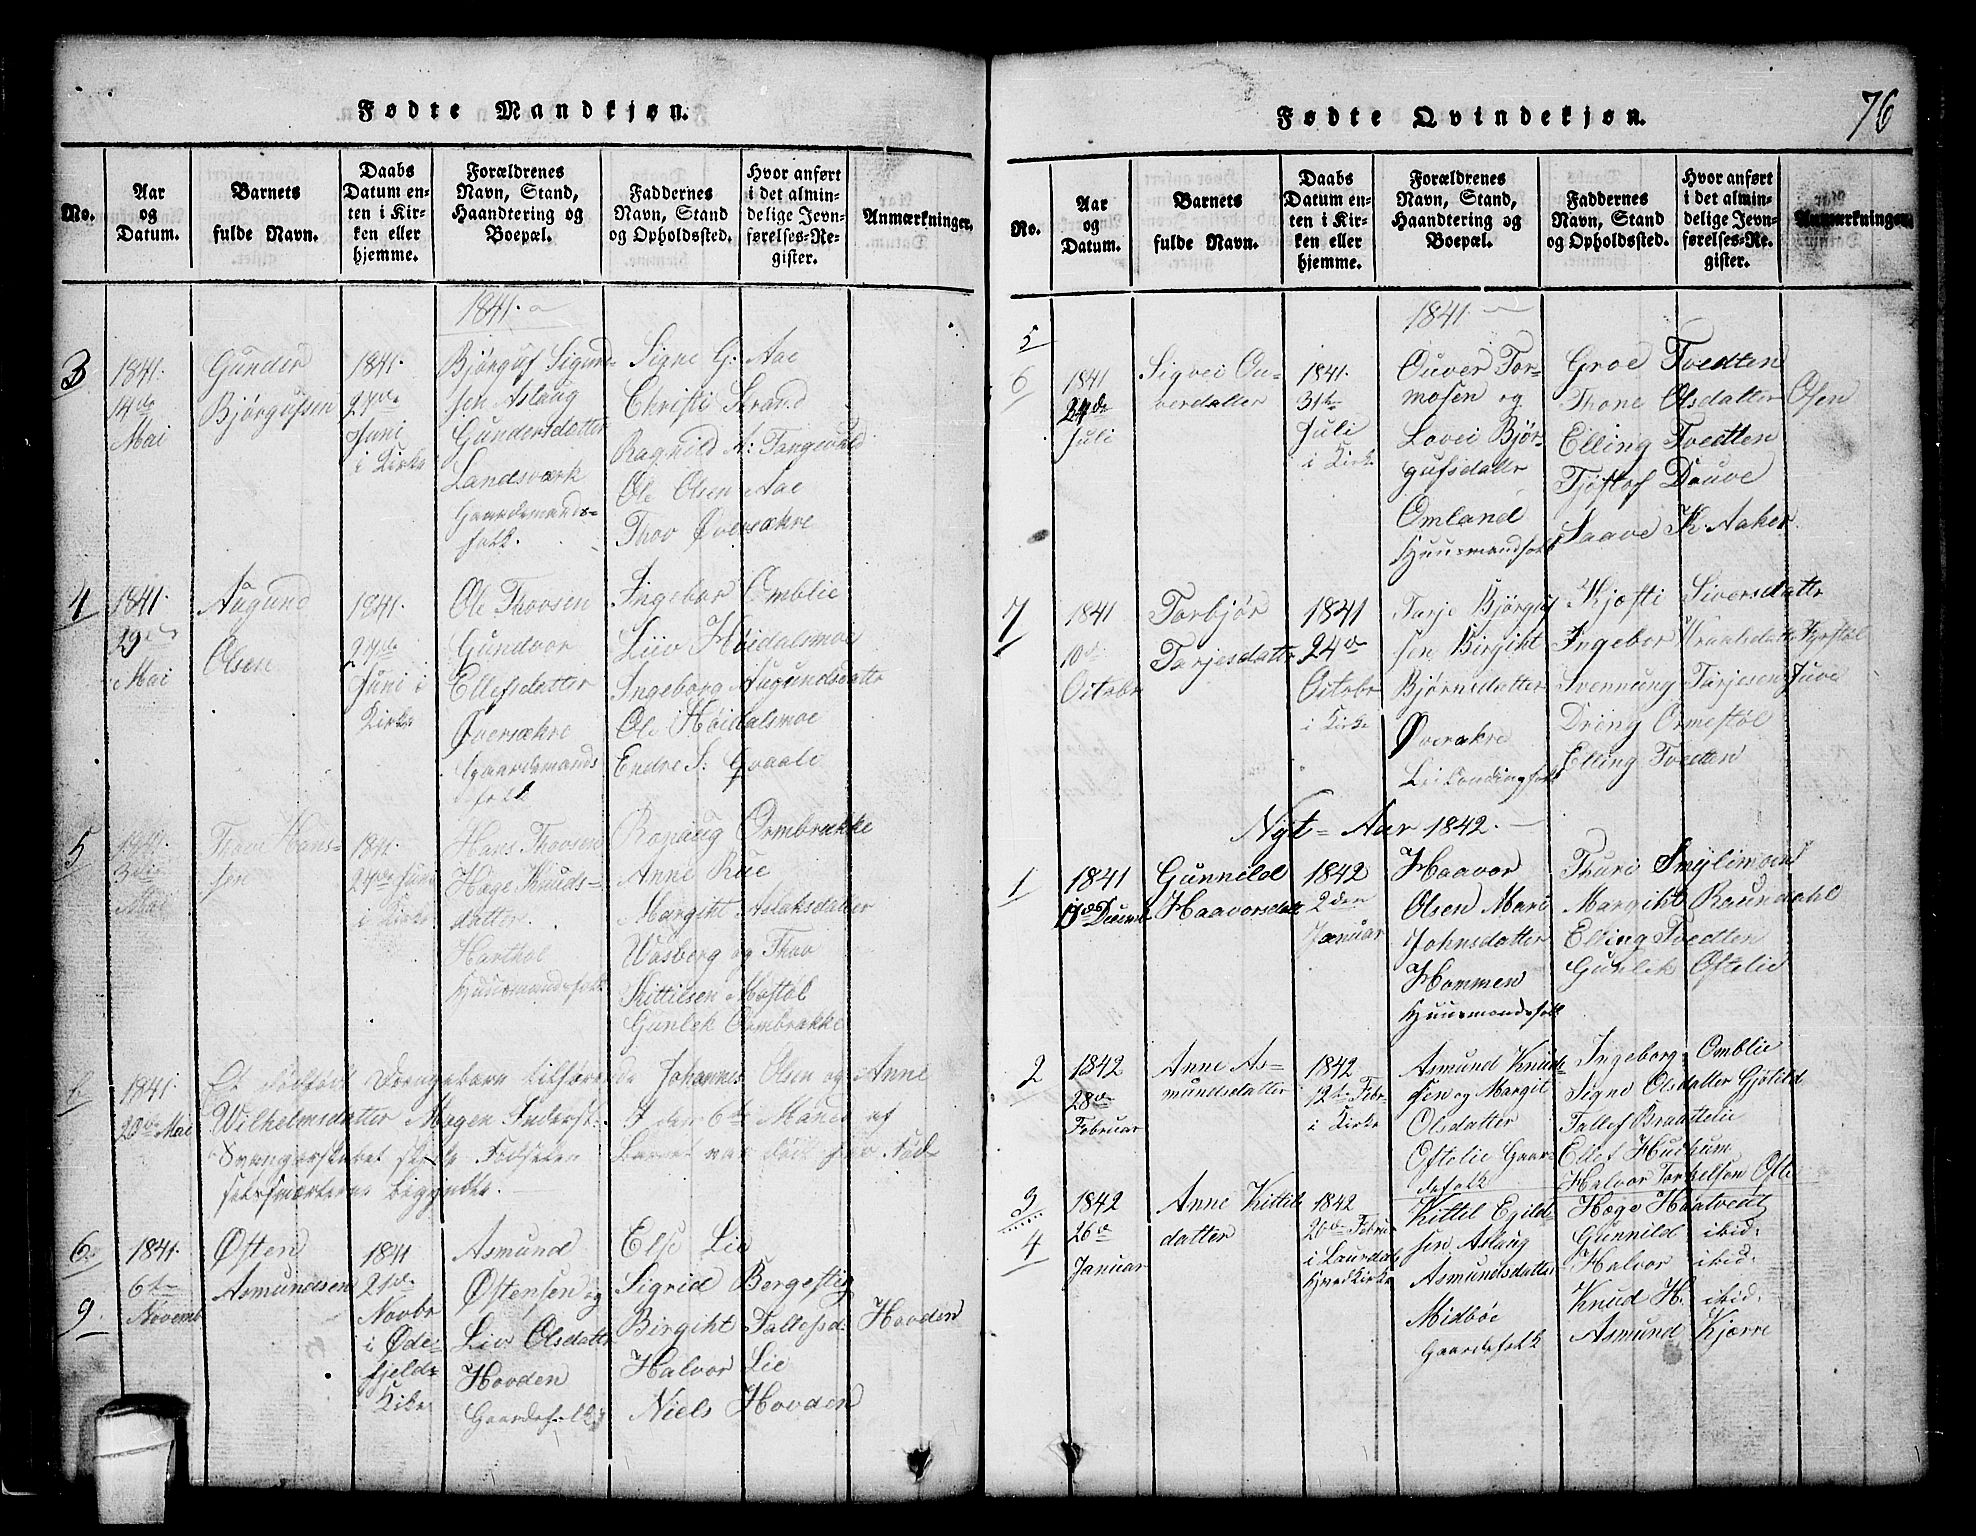 Fødte Mandkjøn.
No.
Aar
og
Datum.
Barnets
fulde Navn.
Daabs
Datum en-
ten i Kir-
ken eller
hjemme.
Forældrenes
Navn, Stand,
Haandtering og
Boepæl.
Faddernes
Navn, Stand
og Opholdssted.
Hvor anført
i det almin-
delige Jevn-
førelses-Re-
gister.
Anmærkninger.
1841.
3
1841.
14de
Mai
Gunder
Bjørgufsen
1841.
27de
Juni
i Kirke
Bjørguf Sigund-
sen Aslaug
Gundersdatter
Landsværk
Gaardemands-
folk.
Signe G: Aae
Christi Strand
Ragnild A: Tangevald
Ole Olsen Aae
Thov Øversækre
4
1841.
29de
Mai
Augund
Olsen
1841.
27de
Juni i
Kirke
Ole Thovsen
Gundvor
Ellefsdatter
Øversækre
Gaardemands
folk
Ingebor Omblie
Liiv Høidalsmoe
Ingeborg Augundsdatte
Ole Høidalsmoe
Endre S: Qvaale
5
1841.
Mai
Thove Hans-
sen
1841.
27de Juni
i Kirke
Hans Thovsen
Hæge Knuds-
datter
Harthol
Huusmandsfolk
Ronaug Ormbrække
Anne Rue
Margitt Aslaksdatter
Wasberg og Thov
Kittilsen Møstøl
Gunlek Ormbrække
1841.
20de Mai
Et dødfødt Drengebarn tilhørende Johannes Olsen og Anne
Wilhelmsdatter Mogen I den 6te Maaned af
Svangerskabet skede Fødselen Barnet var dødt før Fød-
selssmerterne begyndte.
6
9
1841.
6te
Novemb
Østen
Asmundsen
1841
21de
Novbr
i Øde-
fjelds
Kirke
Asmund
Østensen og
Liv Olsdatter
Hovden
Gaardefolk
Else Lie
Sigrid Bergestig
Birgiht Tallefsd. Hovden
Halvor Lie
Niels Hovden
76
Fødte Qvindekjøn.
No.
Aar
og
Datum.
Barnets
fulde Navn.
Daabs
Datum en-
ten i Kir-
ken eller
hjemme.
Forældrenes
Navn, Stand,
Haandtering og
Boepæl.
Faddernes
Navn, Stand
og Opholdssted.
Hvor anført
i det almin-
delige Jevn-
førelses-Re-
gister.
Anmærkninger.
1841.
5
6
1841
24de
Juli
Sigvei Ou-
verdatter
1841.
31te
Juli
i Kirke
Ouver Tor-
mosen og
Lovei Bjør-
gufsdatter
Omland
Huusmandsfolk
Groe Tvedten
Thone Olsdatter Ofsen
Elling Tvedten
Tjøstof Dauve
Saave K. Aaker.
7
1841
10de
Octobr
Torbjør
Tarjesdatter
1841
24de
Octobr
i Kirke
Tarje Bjørguf
sen Birgiht
Bjørnsdatter
Øverækre
Kjøsti Siversdatter
Ingebor
Svennung Tarjesen Juve
Dreng Ormestøl
Elling Tvedten
Nyt-Aar 1842.
1
1841
Decemb
Gunnild
Haavorsdatt
1842
2den
Januar
Haavor
Olsen Mari
Johnsdatter
Hommen
Huusmandsfolk
Thuri Smylimoend
Margiht Raundahl
Elling Tvedten
Gunlek Oftelie
2
1842
28de
Februar
Anne As-
mundsdatter
1842
12te Febr
i Kirke
Asmund Knud-
sen og Margit
Olsdatter
Oftelie Gaar-
defolk
Ingeborg Omblie
Signe Olsdatter Gjølild
Tallef Braattelie
Ellef Hudium
Halvor Torkelsen Ofte
3
4
1842
26de
Januar
Anne Kittils
datter
1842
20de Febru
i Laurdals
HvedKirke
Kittel Egild-
sen Aslaug
Asmundsdatter
Midbøe
Gaardefolk
Hæge Høltvedt
Gunnild ibid:
Halvor ibid.
Knud H. ibid:
Asmund Kjørre